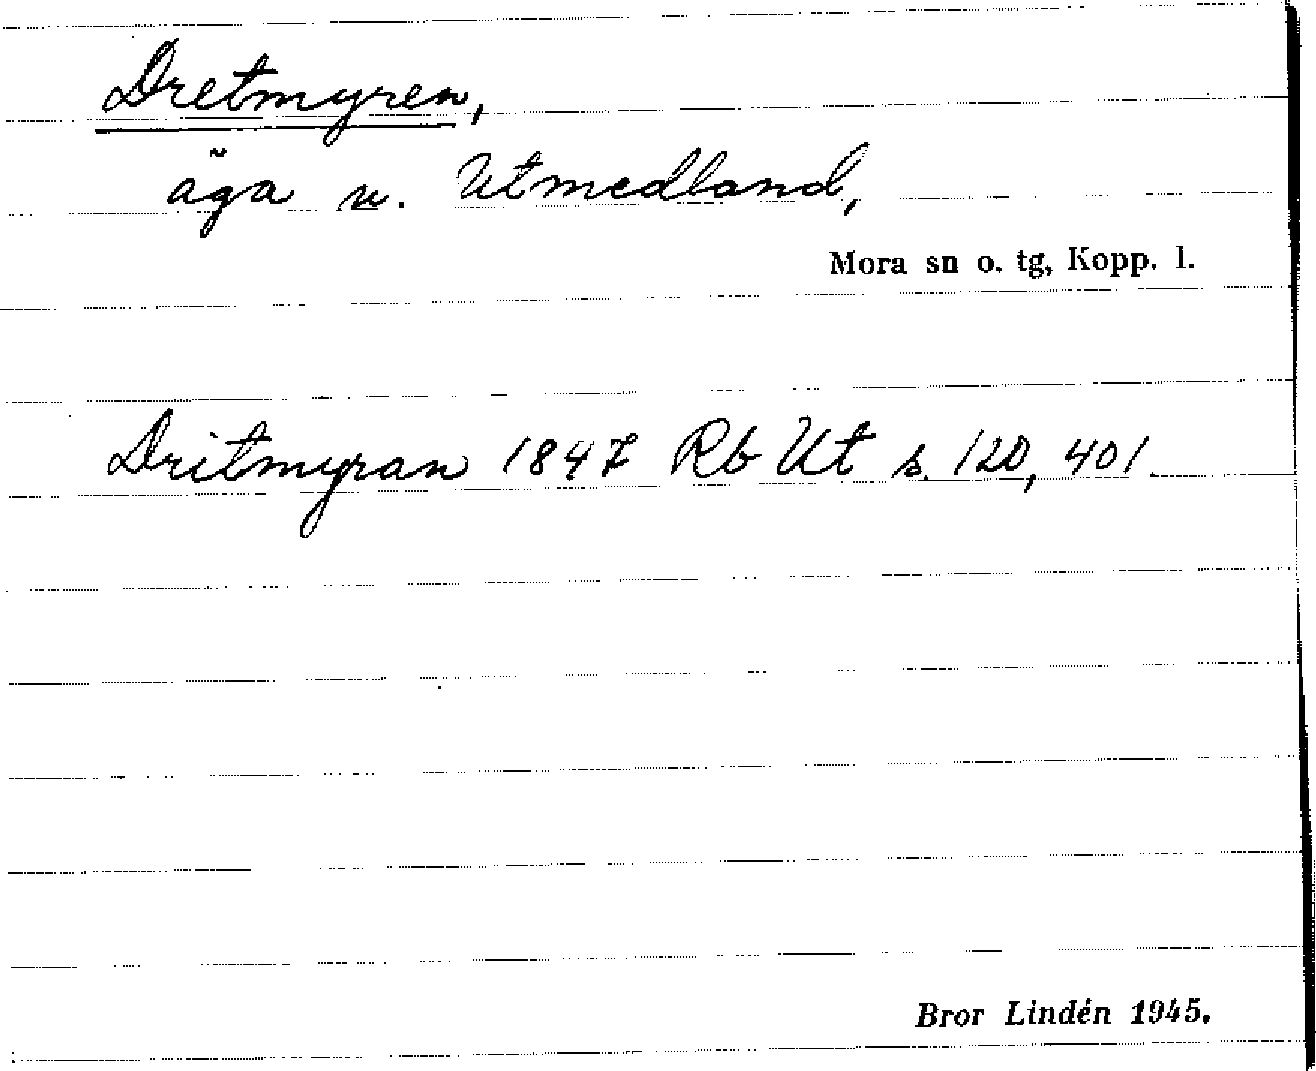 Dretmyren,
äga u. Utmedland,
Mora sn o. tg, Kopp. l.
Dritmyran 1847 Rb Ut s. 120, 401
Bror Lindén 1945.